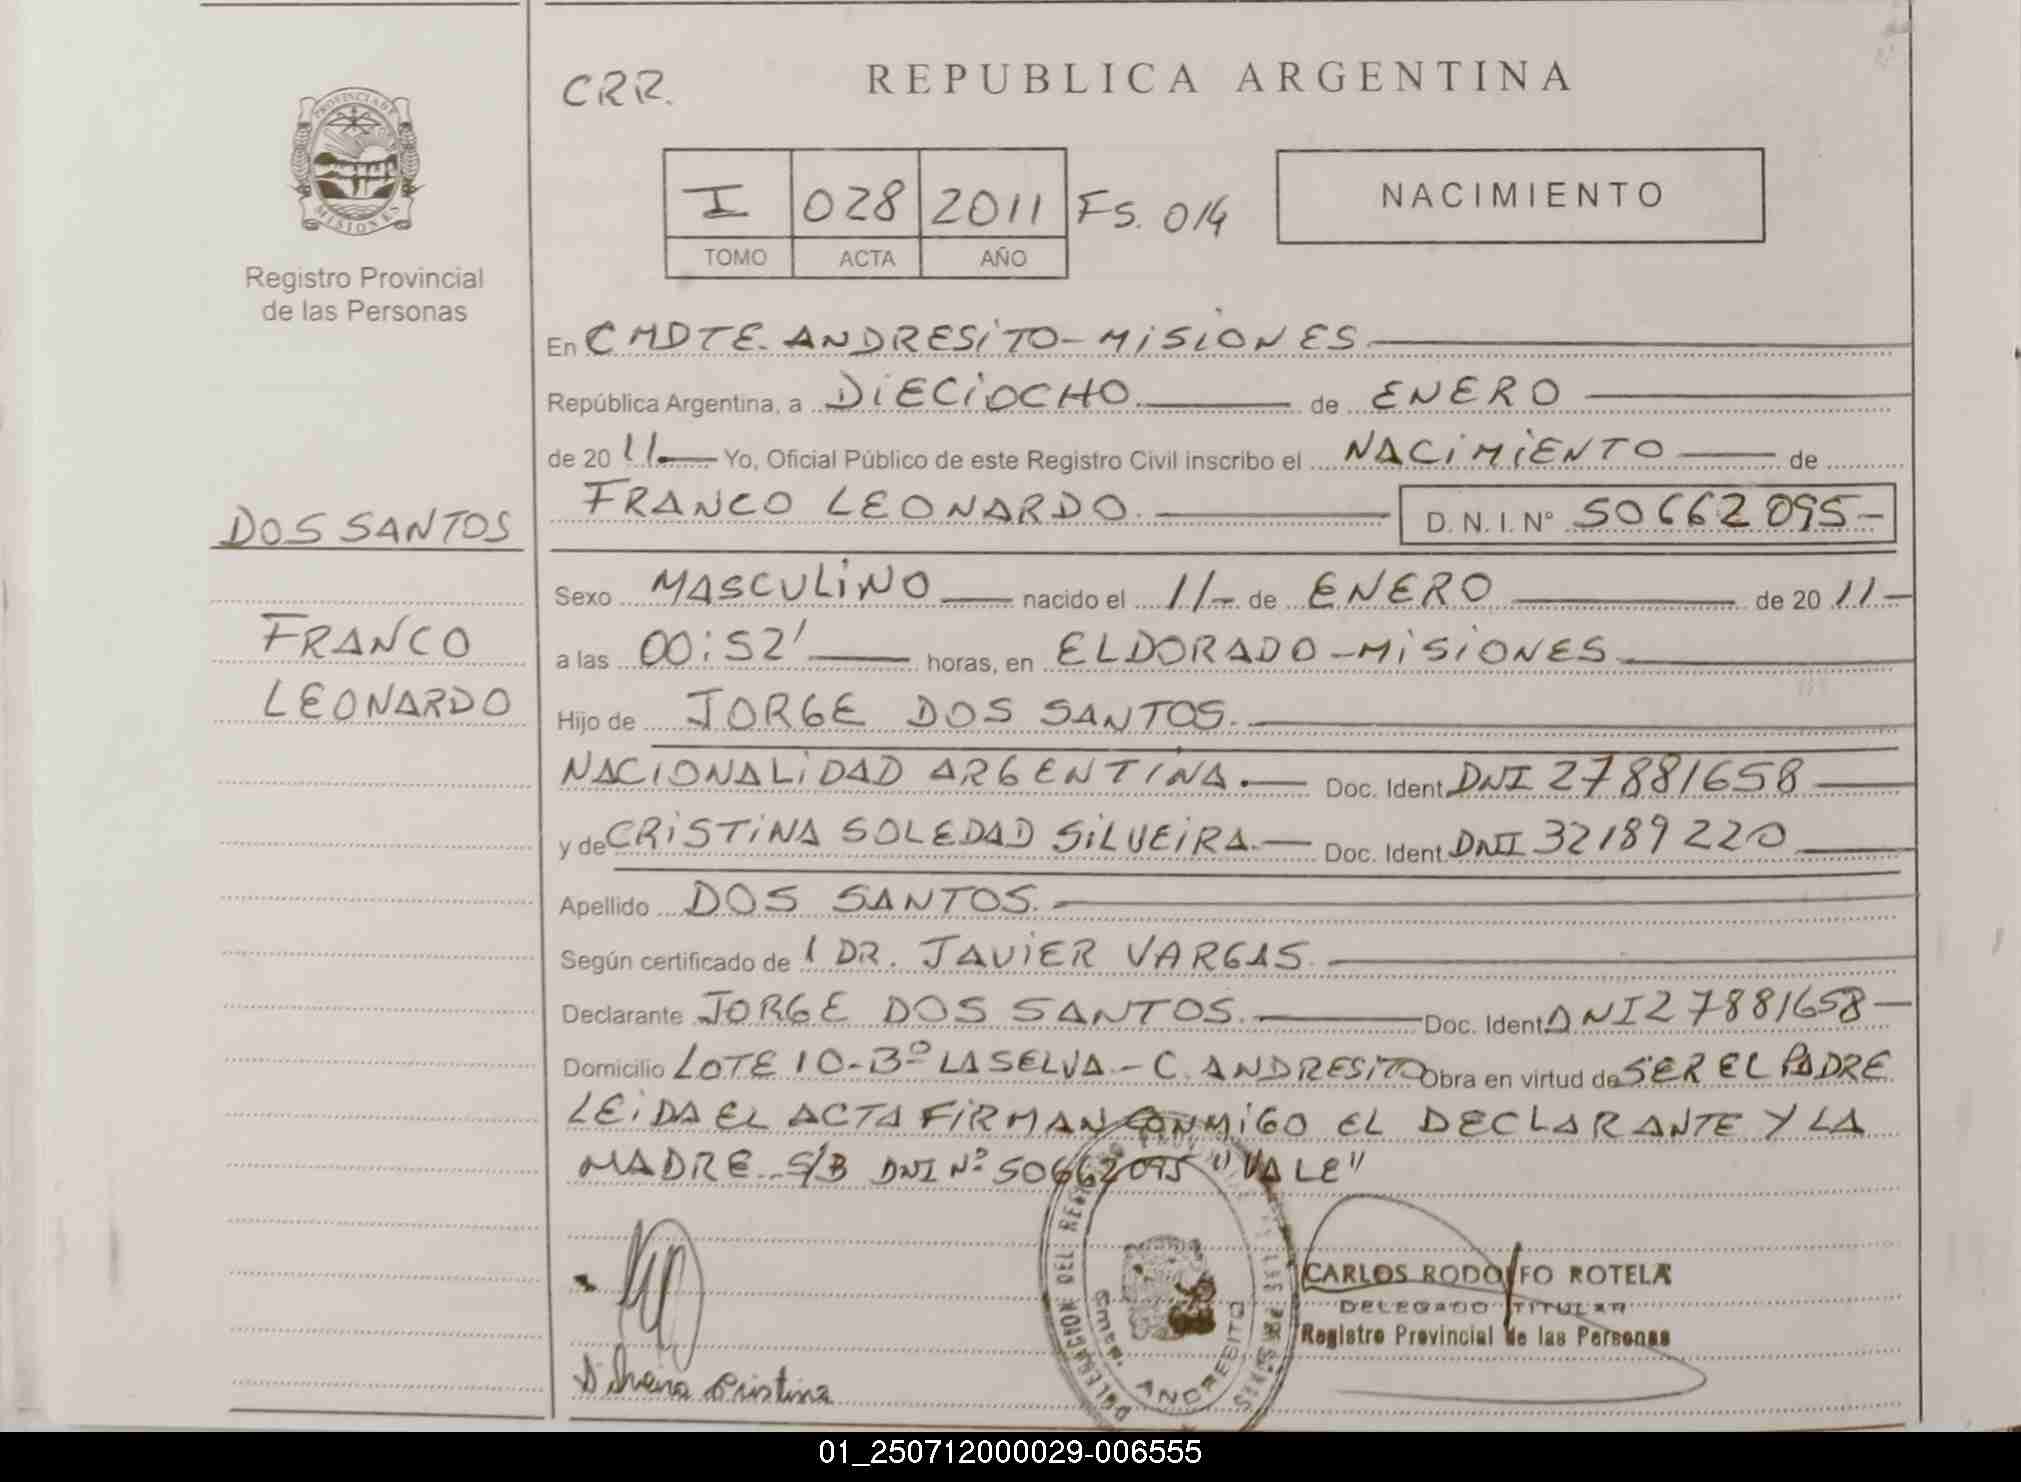 PROVINCIA DE
MISIONES
Registro Provincial
de las Personas
DOS SANTOS
FRANCO
LEONARDO
CRR.
REPUBLICA ARGENTINA
I 028 2011 Fs. 014
TOMO ACTA AÑO
NACIMIENTO
En CMDTE. ANDRESITO - MISIONES
República Argentina, a DIECIOCHO de ENERO
de 2011 Yo, Oficial Público de este Registro Civil inscribo el NACIMIENTO de
FRANCO LEONARDO. D.N.I. N° 50662095-
Sexo MASCULINO nacido el 11 de ENERO de 2011
a las 00:52' horas, en ELDORADO - MISIONES
Hijo de JORGE DOS SANTOS.
NACIONALIDAD ARGENTINA. Doc. Ident. DNI 27881658
y de CRISTINA SOLEDAD SILVEIRA. Doc. Ident. DNI 32189220
Apellido DOS SANTOS.
Según certificado de DR. JAVIER VARGAS
Declarante JORGE DOS SANTOS. Doc. Ident. DNI 27881658
Domicilio LOTE 10 - Bº LA SELVA - C. ANDRESITO Obra en virtud de SER EL PADRE
LEIDA EL ACTA FIRMAN CONMIGO EL DECLARANTE Y LA
MADRE S/B DNI Nº 50662095 "VALE"
CARLOS RODOLFO ROTELA
DELEGADO TITULAR
Registro Provincial de las Personas
DELEGACION DEL
ANDRESITO
Cristina
01_250712000029-006555